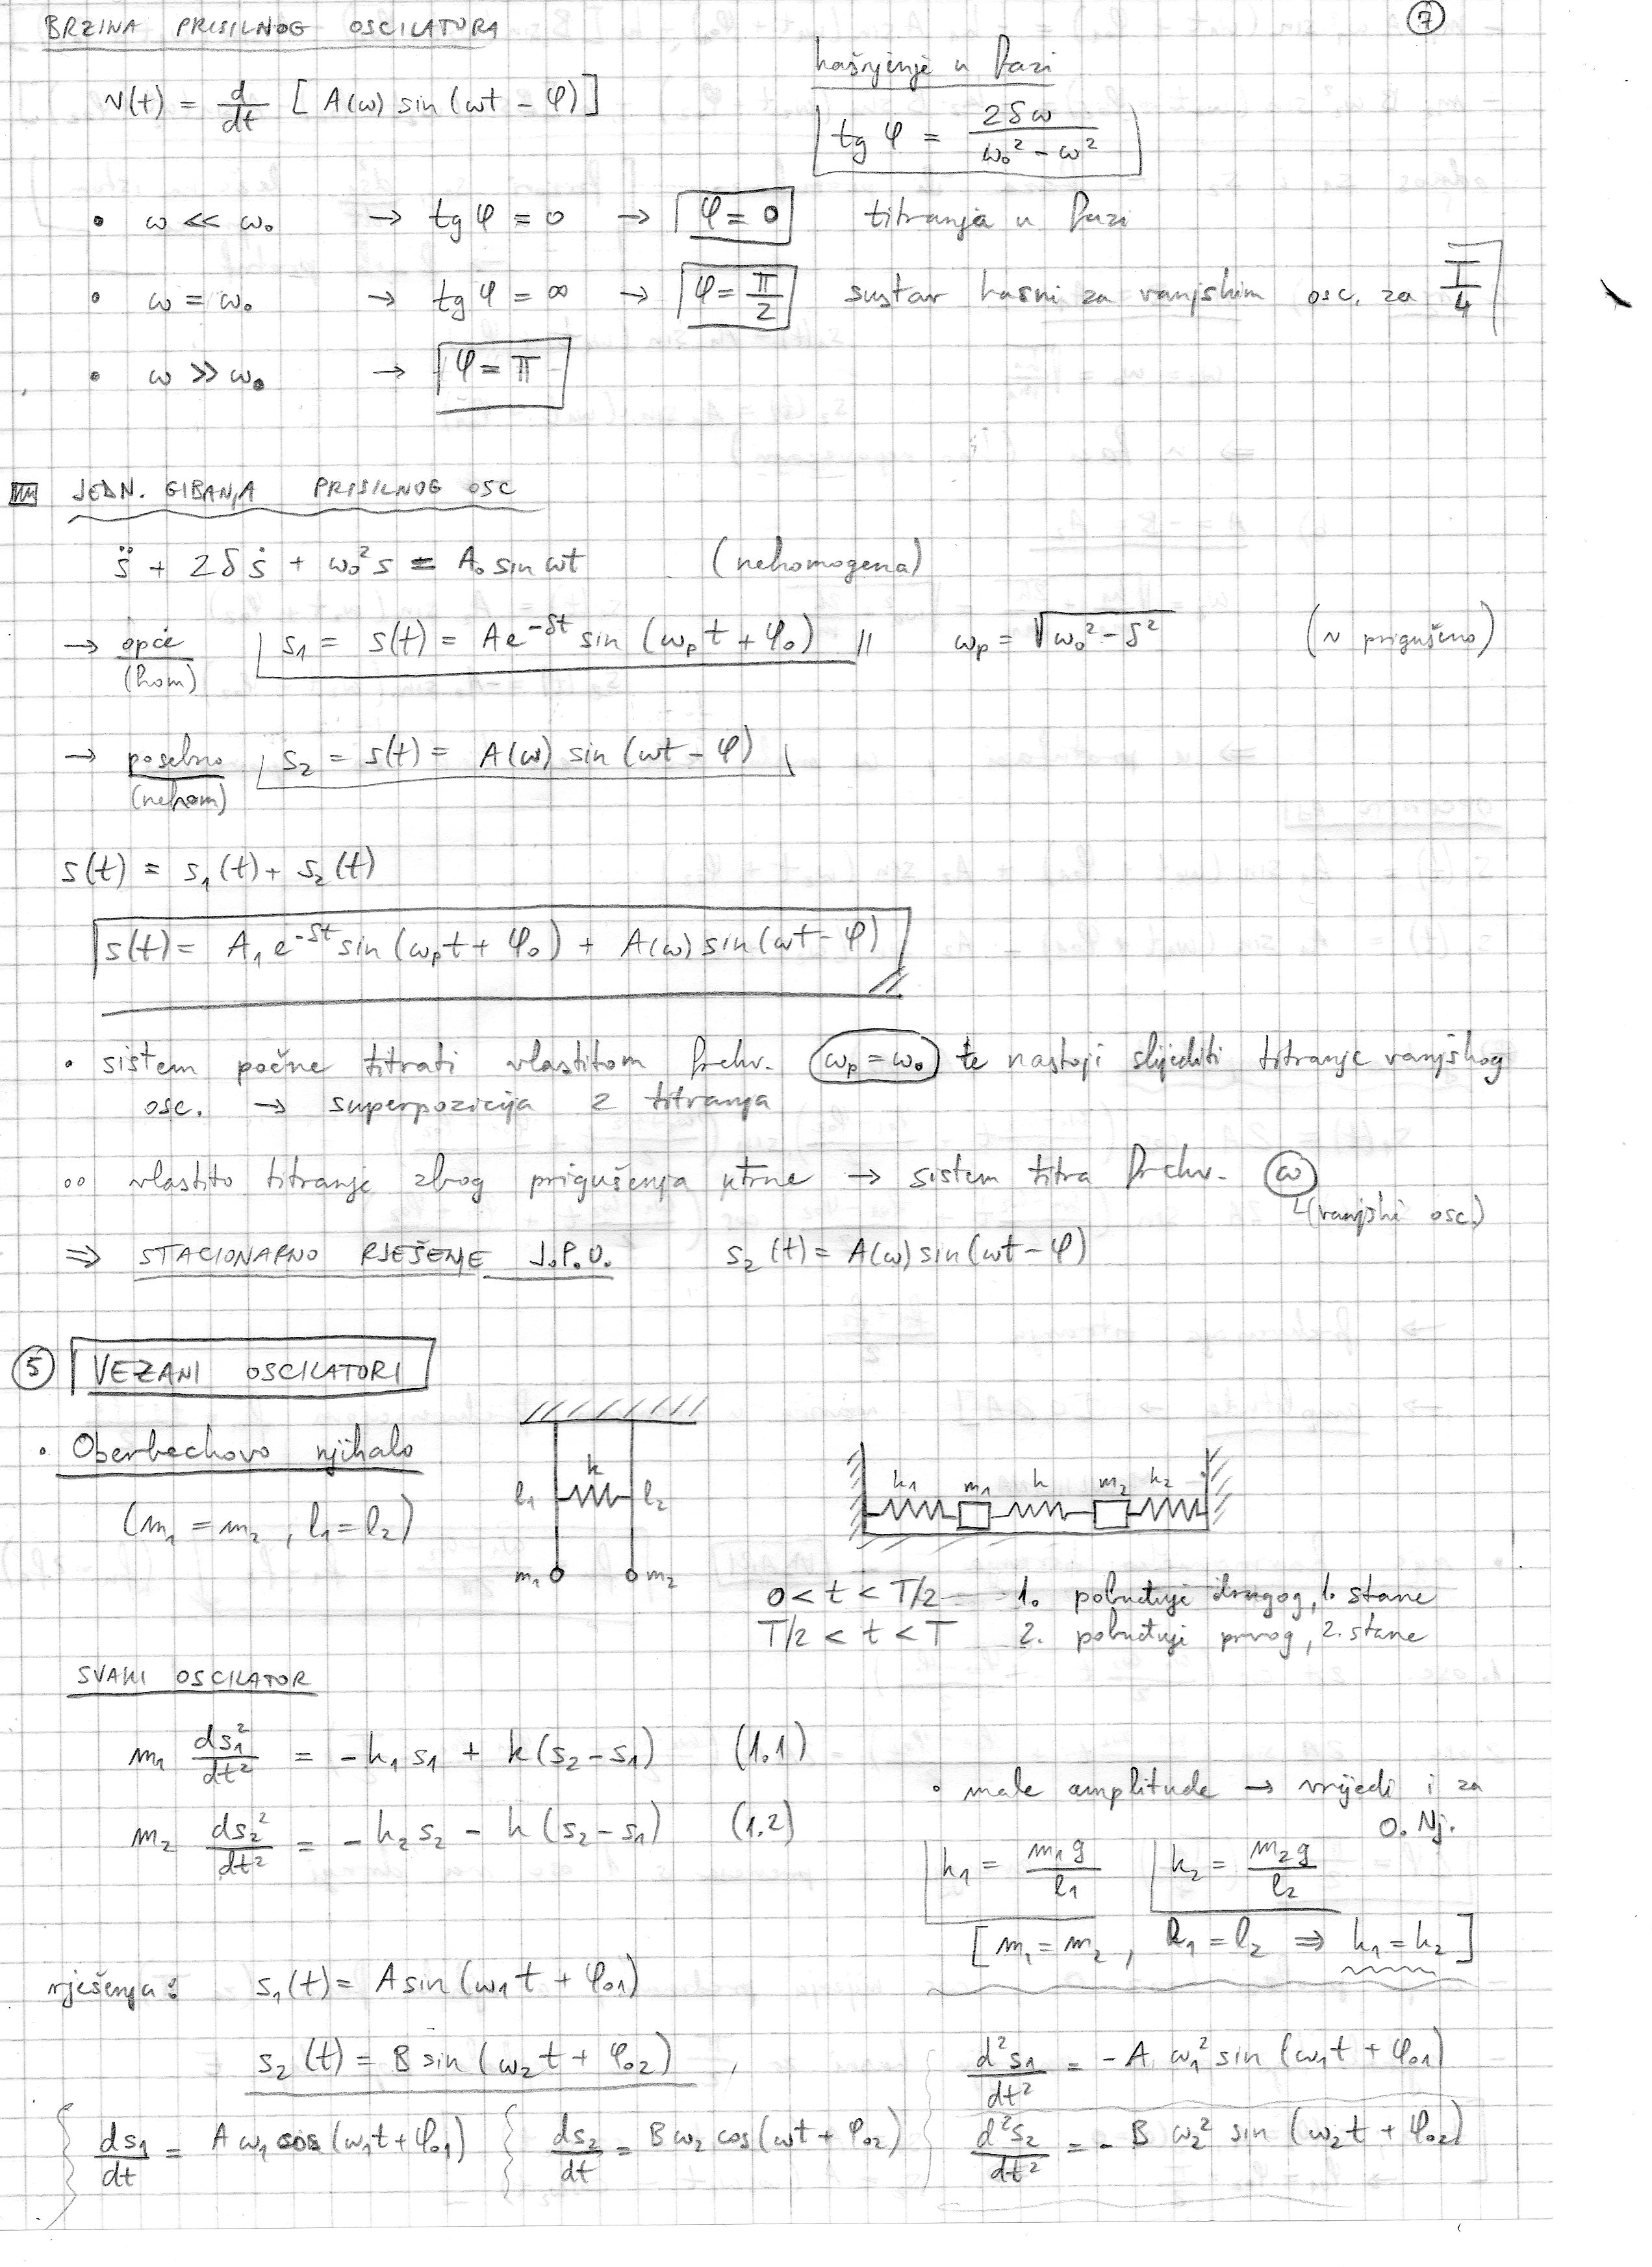 7
BRZINA PRISILNOG OSCILATORA
v(t) = d/dt [A(ω) sin(ωt - φ)]
kašnjenje u fazi
tg φ = 2δω / (ω₀² - ω²)
• ω << ω₀ → tg φ = 0 → φ = 0 titranja u fazi
• ω = ω₀ → tg φ = ∞ → φ = π/2 sustav kasni za vanjskim osc. za T/4
• ω >> ω₀ → φ = π
JEDN. GIBANJA PRISILNOG OSC
s̈ + 2δṡ + ω₀²s = A₀ sin ωt (nehomogena)
→ opće (hom) s₁ = s(t) = Ae^(-δt) sin (ω_p t + φ₀) // ω_p = √(ω₀² - δ²) (~ prigušeno)
→ posebno (nehom) s₂ = s(t) = A(ω) sin (ωt - φ)
s(t) = s₁(t) + s₂(t)
s(t) = A₁e^(-δt) sin (ω_p t + φ₀) + A(ω) sin (ωt - φ)
• sistem počne titrati vlastitom frekv. (ω_p = ω₀) te nastoji slijediti titranje vanjskog
osc. → superpozicija 2 titranja
•• vlastito titranje zbog prigušenja utrne → sistem titra frekv. ω
(vanjski osc.)
⇒ STACIONARNO RJEŠENJE J.P.O. s₂(t) = A(ω) sin(ωt - φ)
5 VEZANI OSCILATORI
• Oberbeckovo njihalo
(m₁ = m₂, l₁ = l₂)
k
l₁ l₂
m₁ m₂
k₁ m₁ k m₂ k₂
0 < t < T/2 1. pobuđuje drugog, 1. stane
T/2 < t < T 2. pobuđuje prvog, 2. stane
SVAKI OSCILATOR
m₁ ds₁²/dt² = -k₁s₁ + k(s₂ - s₁) (1.1)
m₂ ds₂²/dt² = -k₂s₂ - k(s₂ - s₁) (1.2)
• male amplitude → vrijedi i za
O. Nj.
k₁ = m₁g/l₁ k₂ = m₂g/l₂
[m₁ = m₂, l₁ = l₂ ⇒ k₁ = k₂]
rješenja: s₁(t) = A sin(ω₁t + φ₀₁)
s₂(t) = B sin(ω₂t + φ₀₂)
ds₁/dt = Aω₁ cos(ω₁t + φ₀₁)
ds₂/dt = Bω₂ cos(ωt + φ₀₂)
d²s₁/dt² = -Aω₁² sin(ω₁t + φ₀₁)
d²s₂/dt² = -Bω₂² sin(ω₂t + φ₀₂)